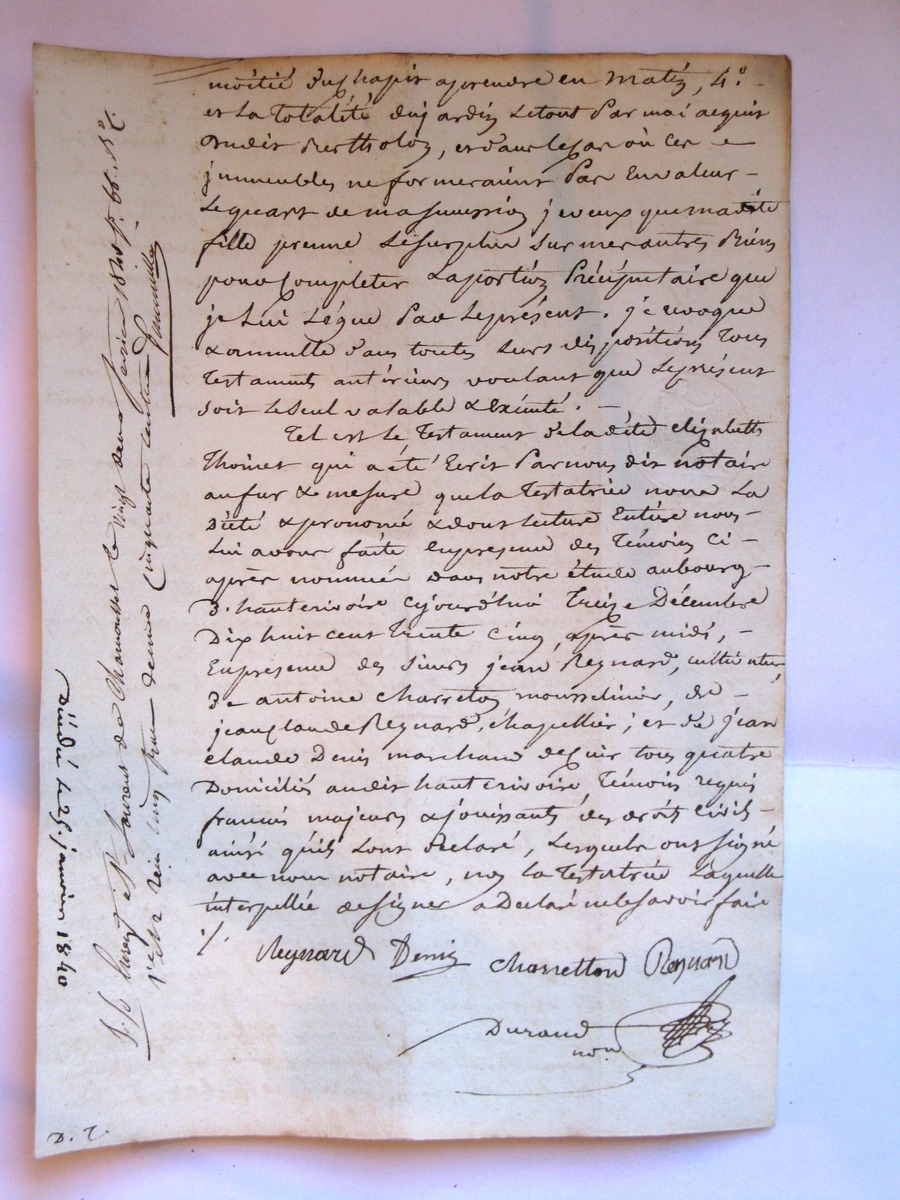 moitié du chapit aprendre en matin, 4°.
et La Totalité du jardin Letout Par moi acquis
Dudit Bertholon, et dans le cas où ces
jmmeubles ne formeraient Pas En valeur
Le quart de ma succession je veux que madite
fille prenne Lesurplus sur mes autres Biens
pour Completer Laportion Précipuitaire que
je Lui Lègue Par Leprésent. je revoque
& annulle dans toutes Leurs dispositions Tous
Testaments antérieurs voulant que Leprésent
soit Le seul valable & Exécuté. —
Tel est Le Testament de ladite elizabeth
Thoinet qui a été Ecrit Par nous dit notaire
au fur & mesure que la Testatrice nous La
Dicté & prononcé & dont Lecture Entière nous
Lui avons faite En presence des Témoins Ci-
après nommés dans notre étude au bourg
D. hauterivoire Cejourd'hui Treize Décembre
Dix huit cent Trente Cinq, après midi, —
En presence des sieurs jean Reynard, cultivateur,
De antoine Charreton mousselinier, de
jean Claude Reynard, chapellier; et de jean
Claude Denis marchand de Cuir tous quatre
Domiciliés audit hauterivoire Témoins requis
français majeurs & jouissants des droits Civils
ainsi qu'ils L'ont déclaré, Lesquels ont signé
avec nous notaire, non la Testatrice Laquelle
interpellée de signer a Déclaré ne le savoir faire
./.
Reynard Denis Charretton Reynard
Durand
no.re
St Laurent de Chamousset le vingt deux janvier 1840 f° 66. R° C.
reçu cinq francs decime Cinquante centimes
Délivré le 25. janvier 1840
D. T.